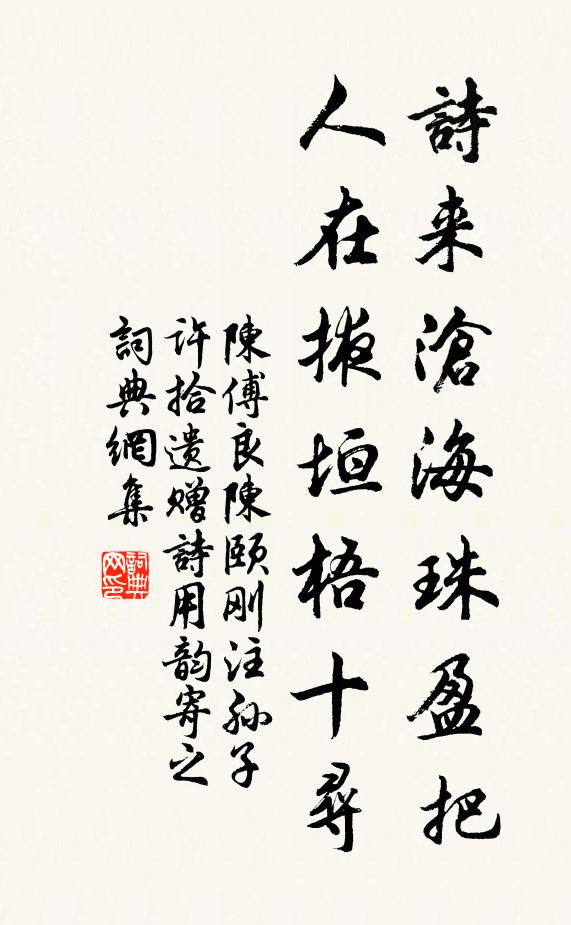 詩来滄海珠盈把
人在掖垣梧十尋
陳傅良陳頤刚注孙子
许拾遗赠詩用韵寄之
詞典網集
詞典网印